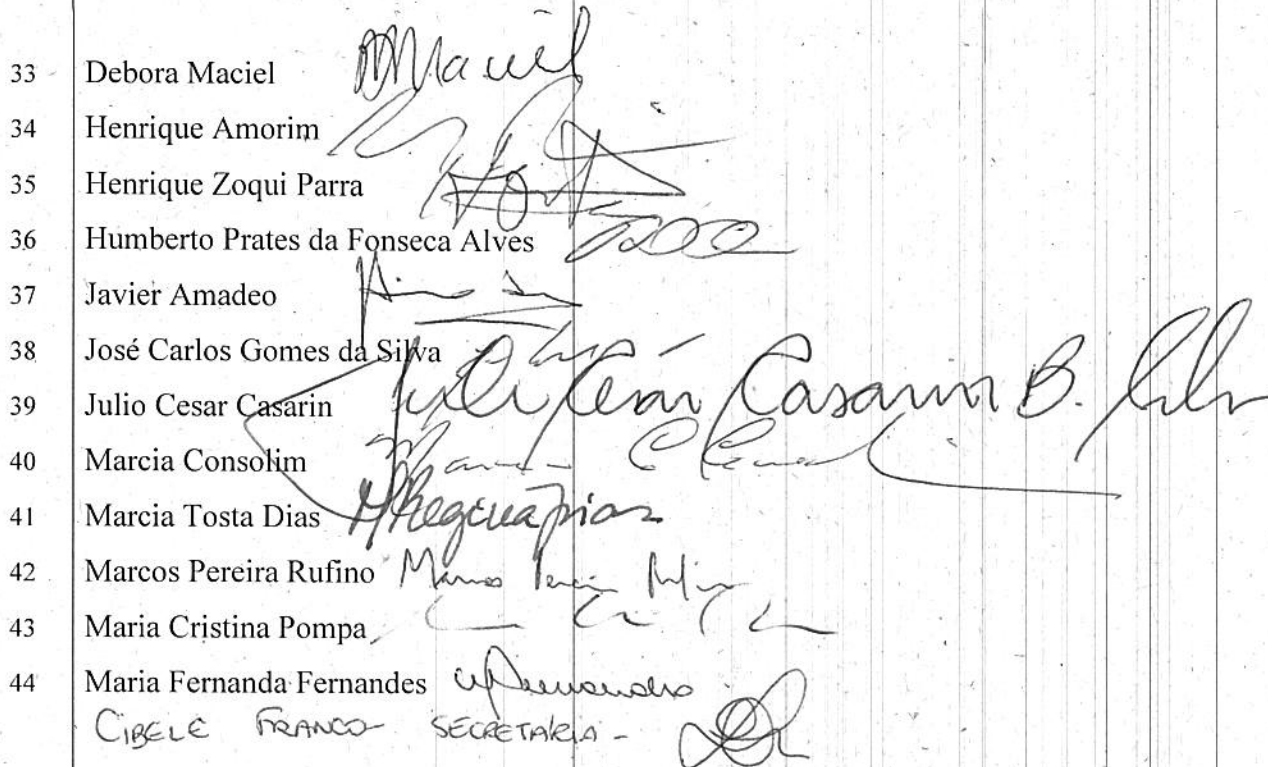 33 Debora Maciel Maciel
34 Henrique Amorim
35 Henrique Zoqui Parra
36 Humberto Prates da Fonseca Alves
37 Javier Amadeo
38 José Carlos Gomes da Silva
39 Julio Cesar Casarin Julio César Casarin B. Silva
40 Marcia Consolim
41 Marcia Tosta Dias
42 Marcos Pereira Rufino Marcos Pereira Rufino
43 Maria Cristina Pompa
44 Maria Fernanda Fernandes
CIBELE FRANCO - SECRETÁRIA -